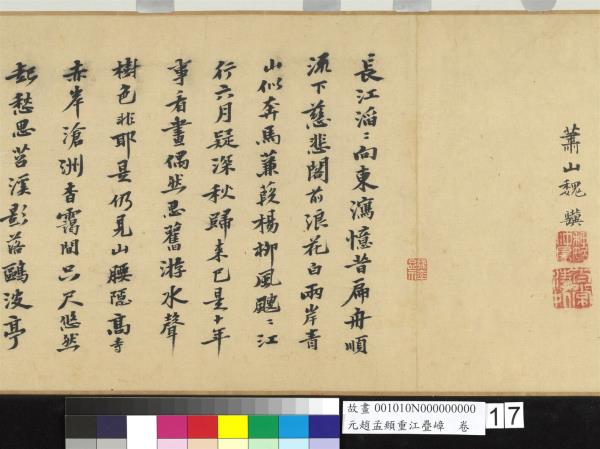 蕭山魏驥
長江滔〻向東瀉憶昔扁舟順
流下慈悲閣前浪花白兩岸青
山似奔馬蒹葭楊柳風颼〻江
行六月疑深秋歸來已是十年
事看畫偶然思舊游水聲
樹色非耶是仍見山腰隱高寺
赤岸滄洲杳靄間咫尺悠然
起愁思苕溪影落鷗波亭
故畫 001010N000000000
元趙孟頫重江疊嶂 卷
17